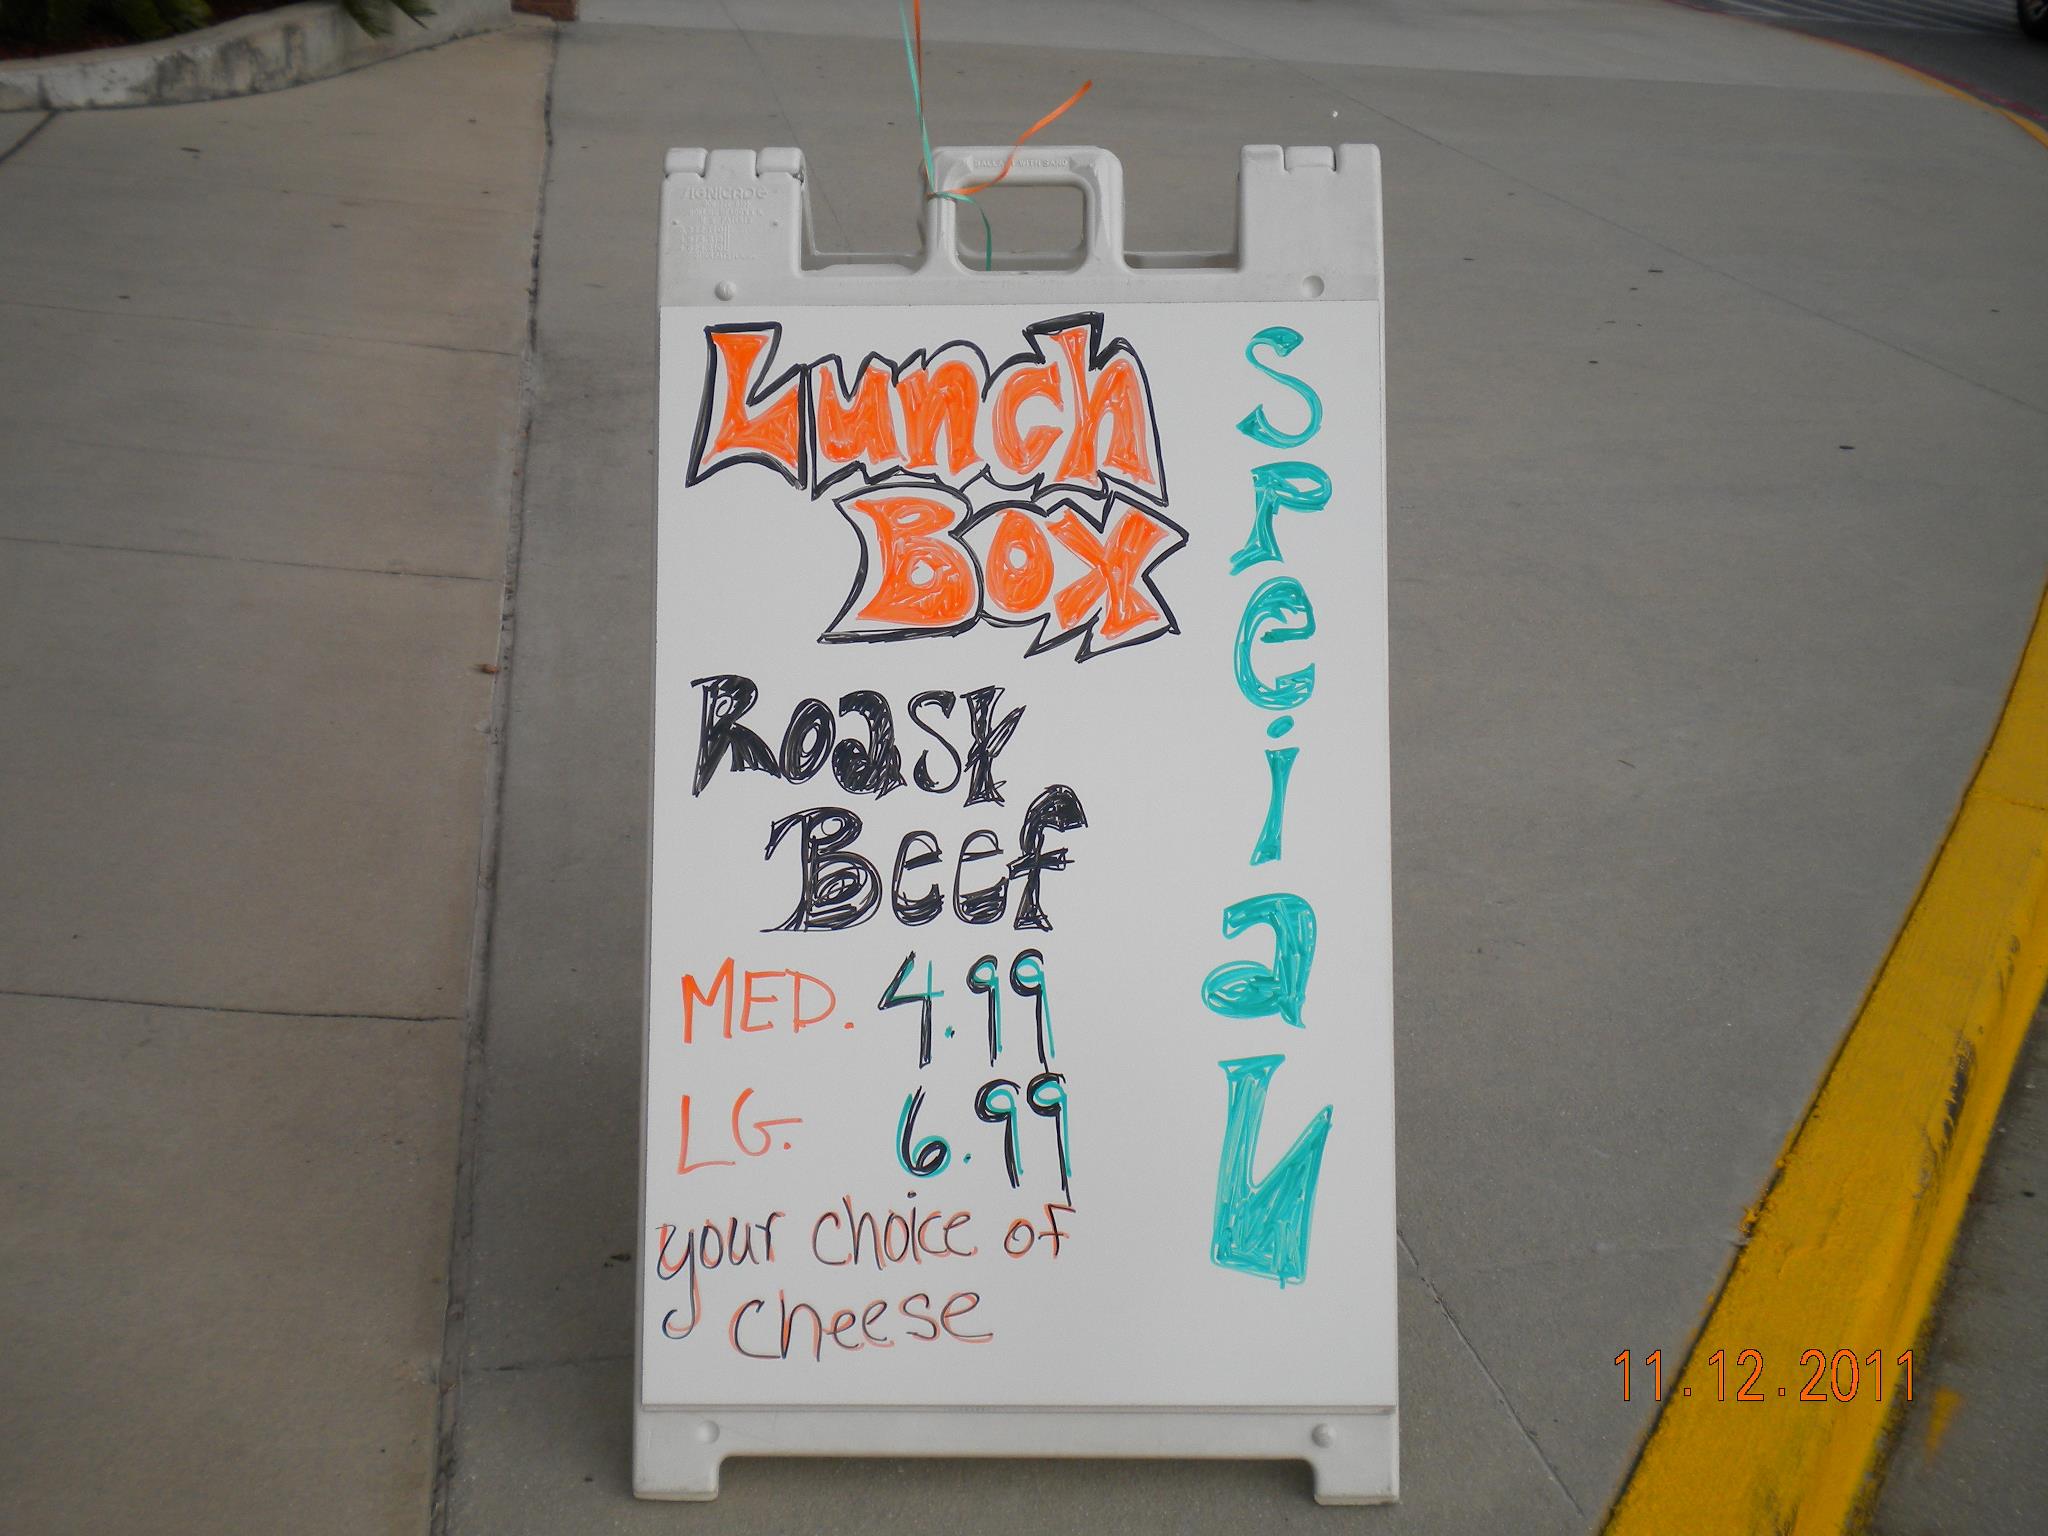 SIGNICADE
Lunch
Box
Special
Roast
Beef
MED. 4.99
LG. 6.99
your choice of
cheese
11.12.2011